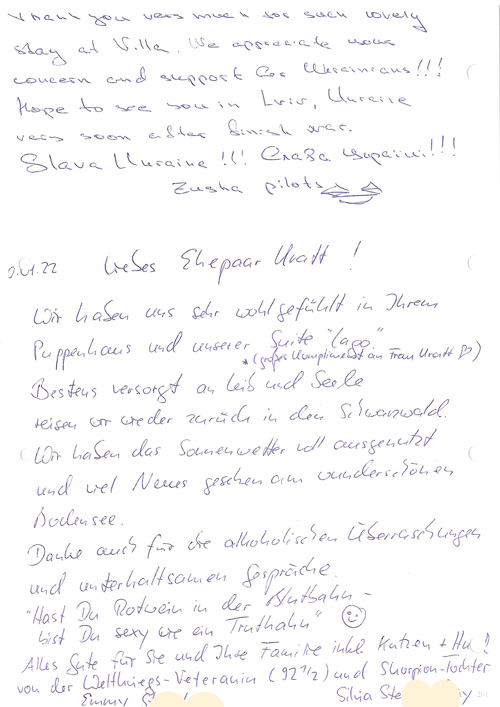 Thank you very much for such lovely
stay at Villa. We appreciate your
concern and support for Ukrainians!!!
Hope to see you in Lviv, Ukraine
very soon after finish war.
Slava Ukraine !!! Слава Україні!!!
pilots
2.VI.22 Liebes Ehepaar !
Wir haben uns sehr wohlgefühlt in Ihrem
Puppenhaus und unserer Suite "Lago."
*(großes Kompliment an Frau
Bestens versorgt an Leib und Seele
reisen wir wieder zurück in den Schwarzwald.
Wir haben das Sonnenwetter voll ausgenutzt
und viel Neues gesehen am wunderschönen
Bodensee.
Danke auch für die alkoholischen Überraschungen
und unterhaltsamen Gespräche.
"Hast Du Rotwein in der Blutbahn -
bist Du sexy wie ein Truthahn"
Alles Gute für Sie und Ihre Familie inkl. Katzen + Hu !
von der Weltkriegs-Veteranin (92 1/2) und Skorpion-Tochter
Emmy Silvia